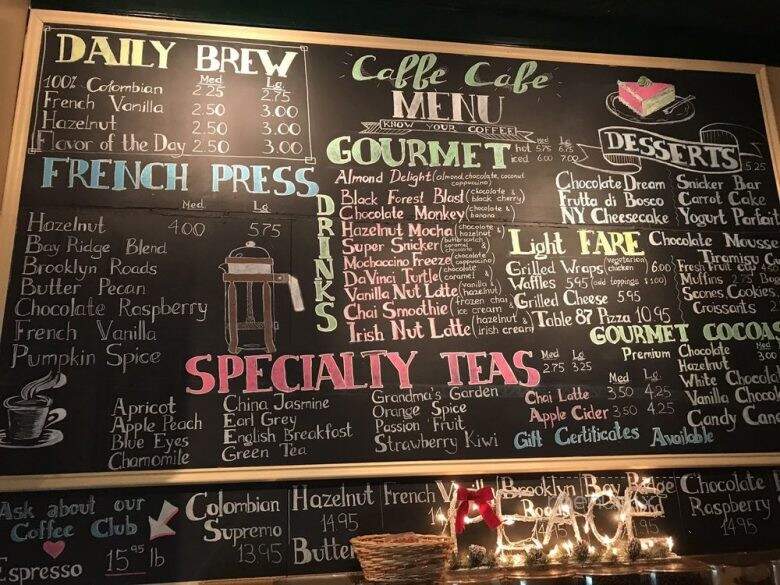 DAILY BREW
Med Lg
100% Colombian 2.25 2.75
French Vanilla 2.50 3.00
Hazelnut 2.50 3.00
Flavor of the Day 2.50 3.00
FRENCH PRESS
Med Lg
Hazelnut 4.00 5.75
Bay Ridge Blend
Brooklyn Roads
Butter Pecan
Chocolate Raspberry
French Vanilla
Pumpkin Spice
Caffe Cafe
MENU
KNOW YOUR COFFEE
GOURMET
DRINKS
Med Lg
hot 5.75 6.75
iced 6.00 7.00
Almond Delight (almond, chocolate, coconut
cappuccino)
Black Forest Blast (chocolate &
black cherry)
Chocolate Monkey (chocolate &
banana)
Hazelnut Mocha (chocolate &
hazelnut)
Super Snicker (butterscotch
caramel
chocolate)
Mochaccino Freeze (chocolate
cappuccino)
DaVinci Turtle (chocolate
caramel &
Vanilla Nut Latte (vanilla &
hazelnut)
Chai Smoothie (frozen chai
ice cream)
Irish Nut Latte (hazelnut &
irish cream)
DESSERTS
5.25
Chocolate Dream Snicker Bar
Frutta di Bosco Carrot Cake
NY Cheesecake Yogurt Parfait
Chocolate Mousse
Tiramisu
Fresh Fruit Cup
Muffins 2.75
Scones, Cookies
Croissants
Light FARE
Grilled Wraps (vegetarian
chicken) 6.00
Waffles 5.95 (add toppings $1.00)
Grilled Cheese 5.95
Table 87 Pizza 10.95
GOURMET COCOA
Med
Premium Chocolate 3.00
Hazelnut
White Chocolate
Vanilla Choco
Candy Cane
SPECIALTY TEAS
Med Lg
2.75 3.25
Apricot
Apple Peach
Blue Eyes
Chamomile
China Jasmine
Earl Grey
English Breakfast
Green Tea
Grandma's Garden
Orange Spice
Passion Fruit
Strawberry Kiwi
Med Lg
Chai Latte 3.50 4.25
Apple Cider 3.50 4.25
Gift Certificates Available
Ask about our
Coffee Club
Espresso 15.95 lb
Colombian
Supremo
13.95
Hazelnut
14.95
Butter
French Vanilla
Brooklyn
Roads
Bay Ridge
Chocolate
Raspberry
14.95
PEACE